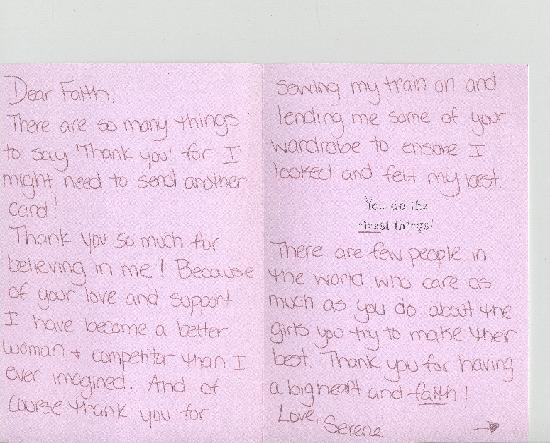 Dear Faith,
There are so many things
to say 'Thank you' for I
might need to send another
card!
Thank you so much for
believing in me! Because
of your love and support
I have become a better
woman + competitor than I
ever imagined. And of
course thank you for
sewing my train on and
lending me some of your
wardrobe to ensure I
looked and felt my best.
You do the
nicest things!
There are few people in
the world who care as
much as you do about the
girls you try to make ther
best. Thank you for having
a big heart and faith!
Love,
Serene